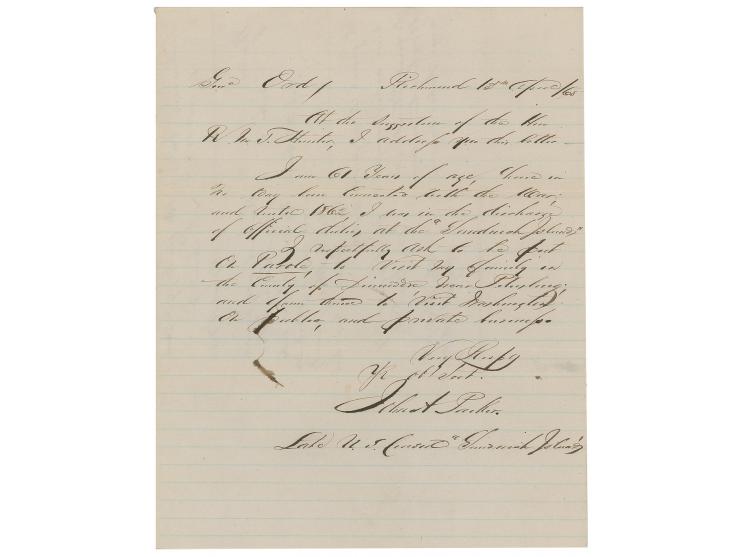 Genl Ord, Richmond 12th April /65
At the suggestion of the Hon
R. M. T. Hunter, I address you this letter –
I am 61 Years of age, have in
no way been Connected with the War;
and until 1862 I was in the discharge
of Official duties at the "Sandwich Islands"
I respectfully Ask to be put
On Parole, to Visit my family in
the County of Dinwiddie near Petersburg;
and from thence to Visit Washington
On public, and private business.
Very Respy
Yr ob Svt.
John A Parker.
Late U. S. Consul "Sandwich Islands